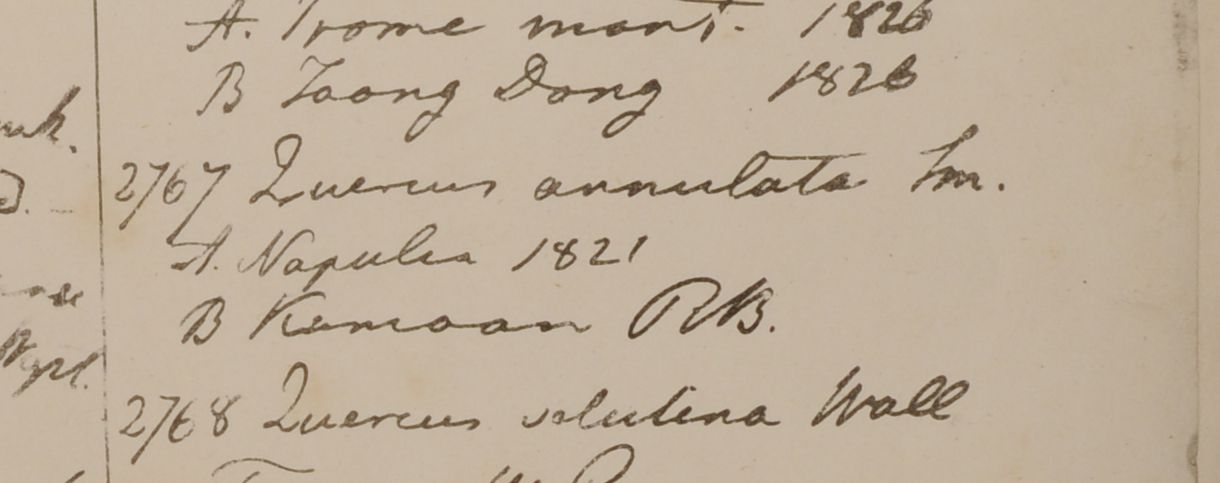 A. Prome mont. 1826
B Taong Dong 1826
2767 Quercus annulata Sm.
A. Napulia 1821
B Kamoan RB.
2768 Quercus velutina Wall